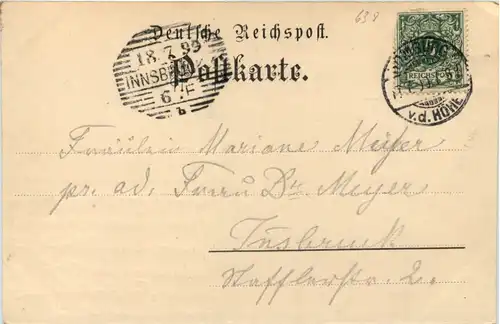 Deutsche Reichspost.
638
Postkarte.
18.7.99
INNSBRUCK
6-7F
b
5
REICHSPOST
HOMBURG
v.d. HÖHE
Fräulein Mariane Meyer
pr. ad. Frau Dr. Meyer
Insbruck
Stafflerstr. 2.